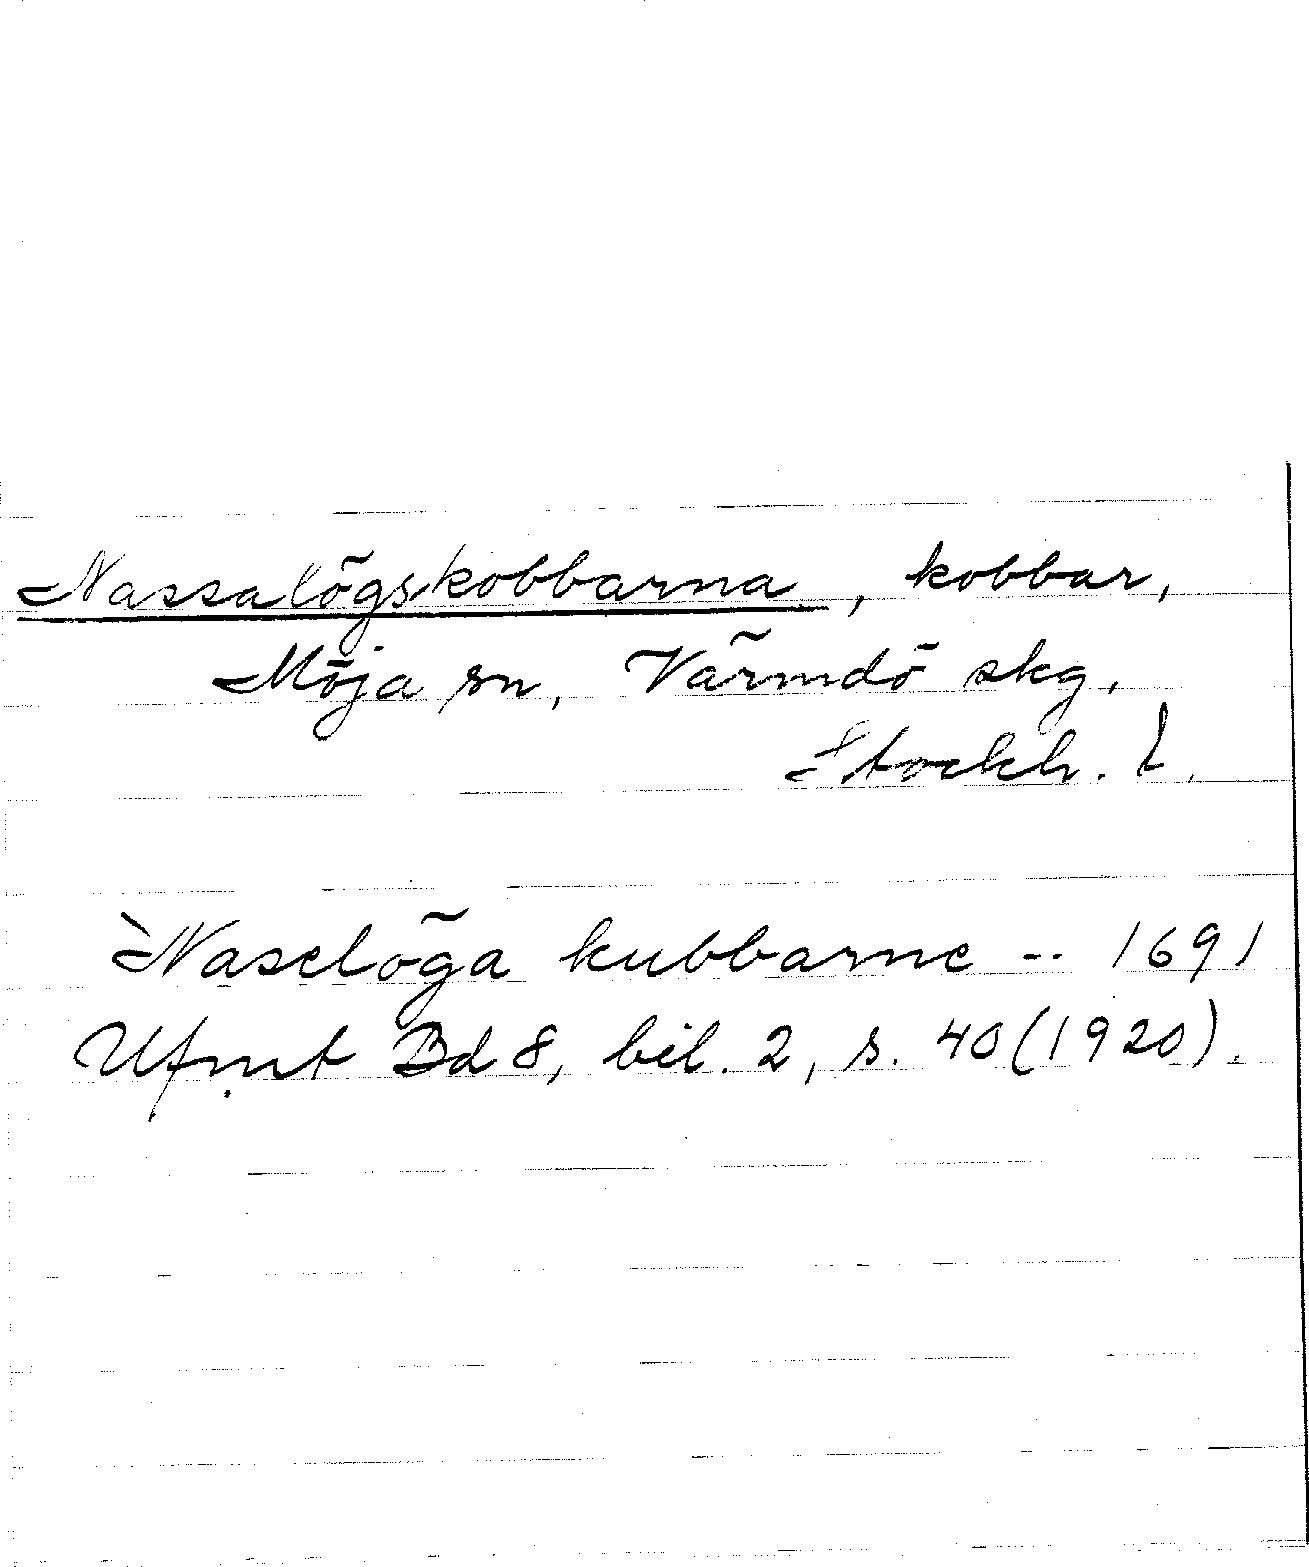 Nassalögskobbarna, kobbar,
Möja sn, Värmdö skg,
Stockh. l.
Naselöga kubbarne -- 1691
Ufmt Bd 8, bil. 2, s. 40 (1920).